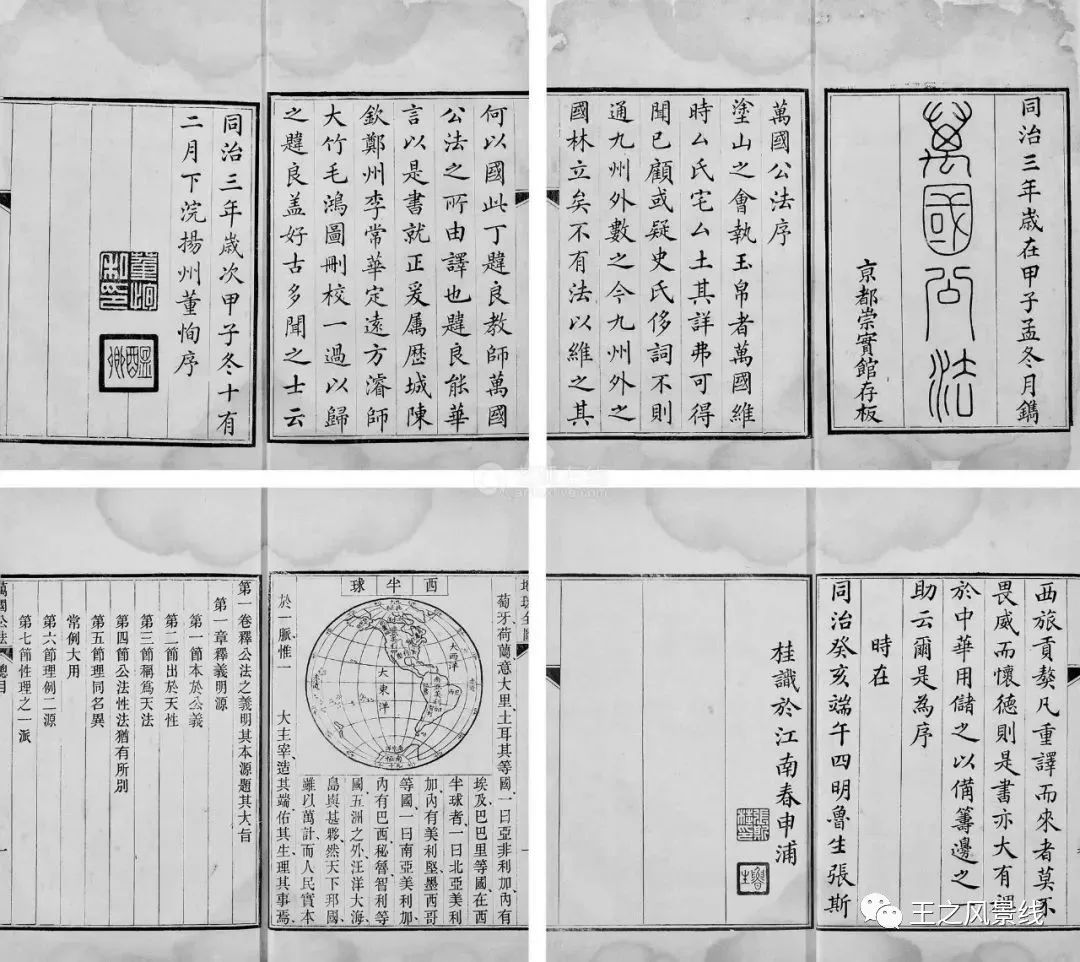 同治三年歲在甲子孟冬月鐫
萬國公法
京都崇實館存板
萬國公法序
塗山之會執玉帛者萬國維
時厶氏宅厶土其詳弗可得
聞已顧或疑史氏侈詞不則
通九州外數之今九州外之
國林立矣不有法以維之其
何以國此丁韙良教師萬國
公法之所由譯也韙良能華
言以是書就正爰属歷城陳
欽鄭州李常華定遠方濬師
大竹毛鴻圖刪校一過以歸
之韙良盖好古多聞之士云
同治三年歲次甲子冬十有
二月下浣揚州董恂序
董恂
私印
醖卿
西旅貢獒凡重譯而來者莫不
畏威而懷德則是書亦大有裨
於中華用儲之以備籌邊之一
助云爾是為序
時在
同治癸亥端午四明魯生張斯
桂識於江南春申浦
張斯
桂印
魯生
地球全圖
西半球
大西洋
大東洋
萄牙、荷蘭、意大里、土耳其等
國、一曰亞非利加、內有
埃及、巴巴里等國、在西
半球者、一曰北亞美利
加、內有美利堅、墨西哥
等國、一曰南亞美利加、
內有巴西、秘魯、智利等
國、五洲之外、汪洋大海、
島與甚夥、然天下邦國、
雖以萬計、而人民實本
於一脈、惟一
大主宰、造其端、佑其生、理其事焉、
第一卷釋公法之義明其本源題其大旨
第一章釋義明源
第一節本於公義
第二節出於天性
第三節稱為天法
第四節公法性法猶有所別
第五節理同名異
常例大用
第六節理例二源
第七節性理之一派
萬國公法
總目
一
王之风景线